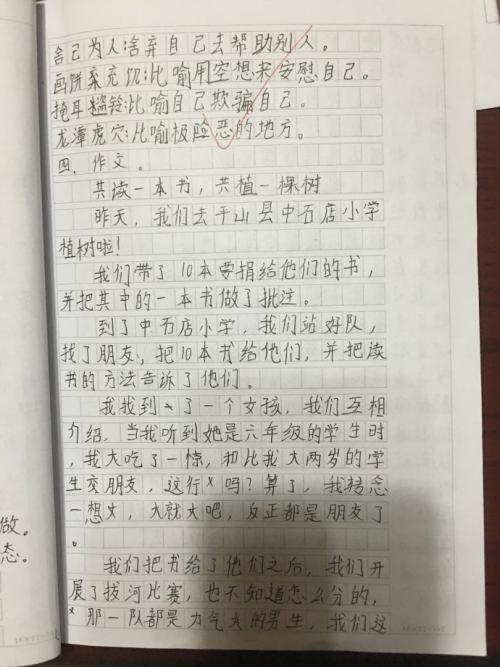 舍己为人:舍弃自己去帮助别人。
画饼充饥:比喻用空想来安慰自己。
掩耳盗铃:比喻自己欺骗自己。
龙潭虎穴:比喻极险恶的地方。
四.作文。
共读一本书,共植一棵树
昨天,我们去平山县中石店小学
植树啦!
我们带了10本要捐给他们的书,
并把其中的一本书做了批注。
到了中石店小学,我们站好队,
找了朋友,把10本书给他们,并把读
书的方法告诉了他们。
我找到了一个女孩,我们互相
介绍,当我听到她是六年级的学生时
,我大吃了一惊,和比我大两岁的学
生交朋友,这行吗?算了,我转念
一想,大就大吧,反正都是朋友了
。
我们把书给了他们之后,我们开
展了拔河比赛,也不知道怎么分的,
那一队都是力气大的男生,我们这
做。
态。